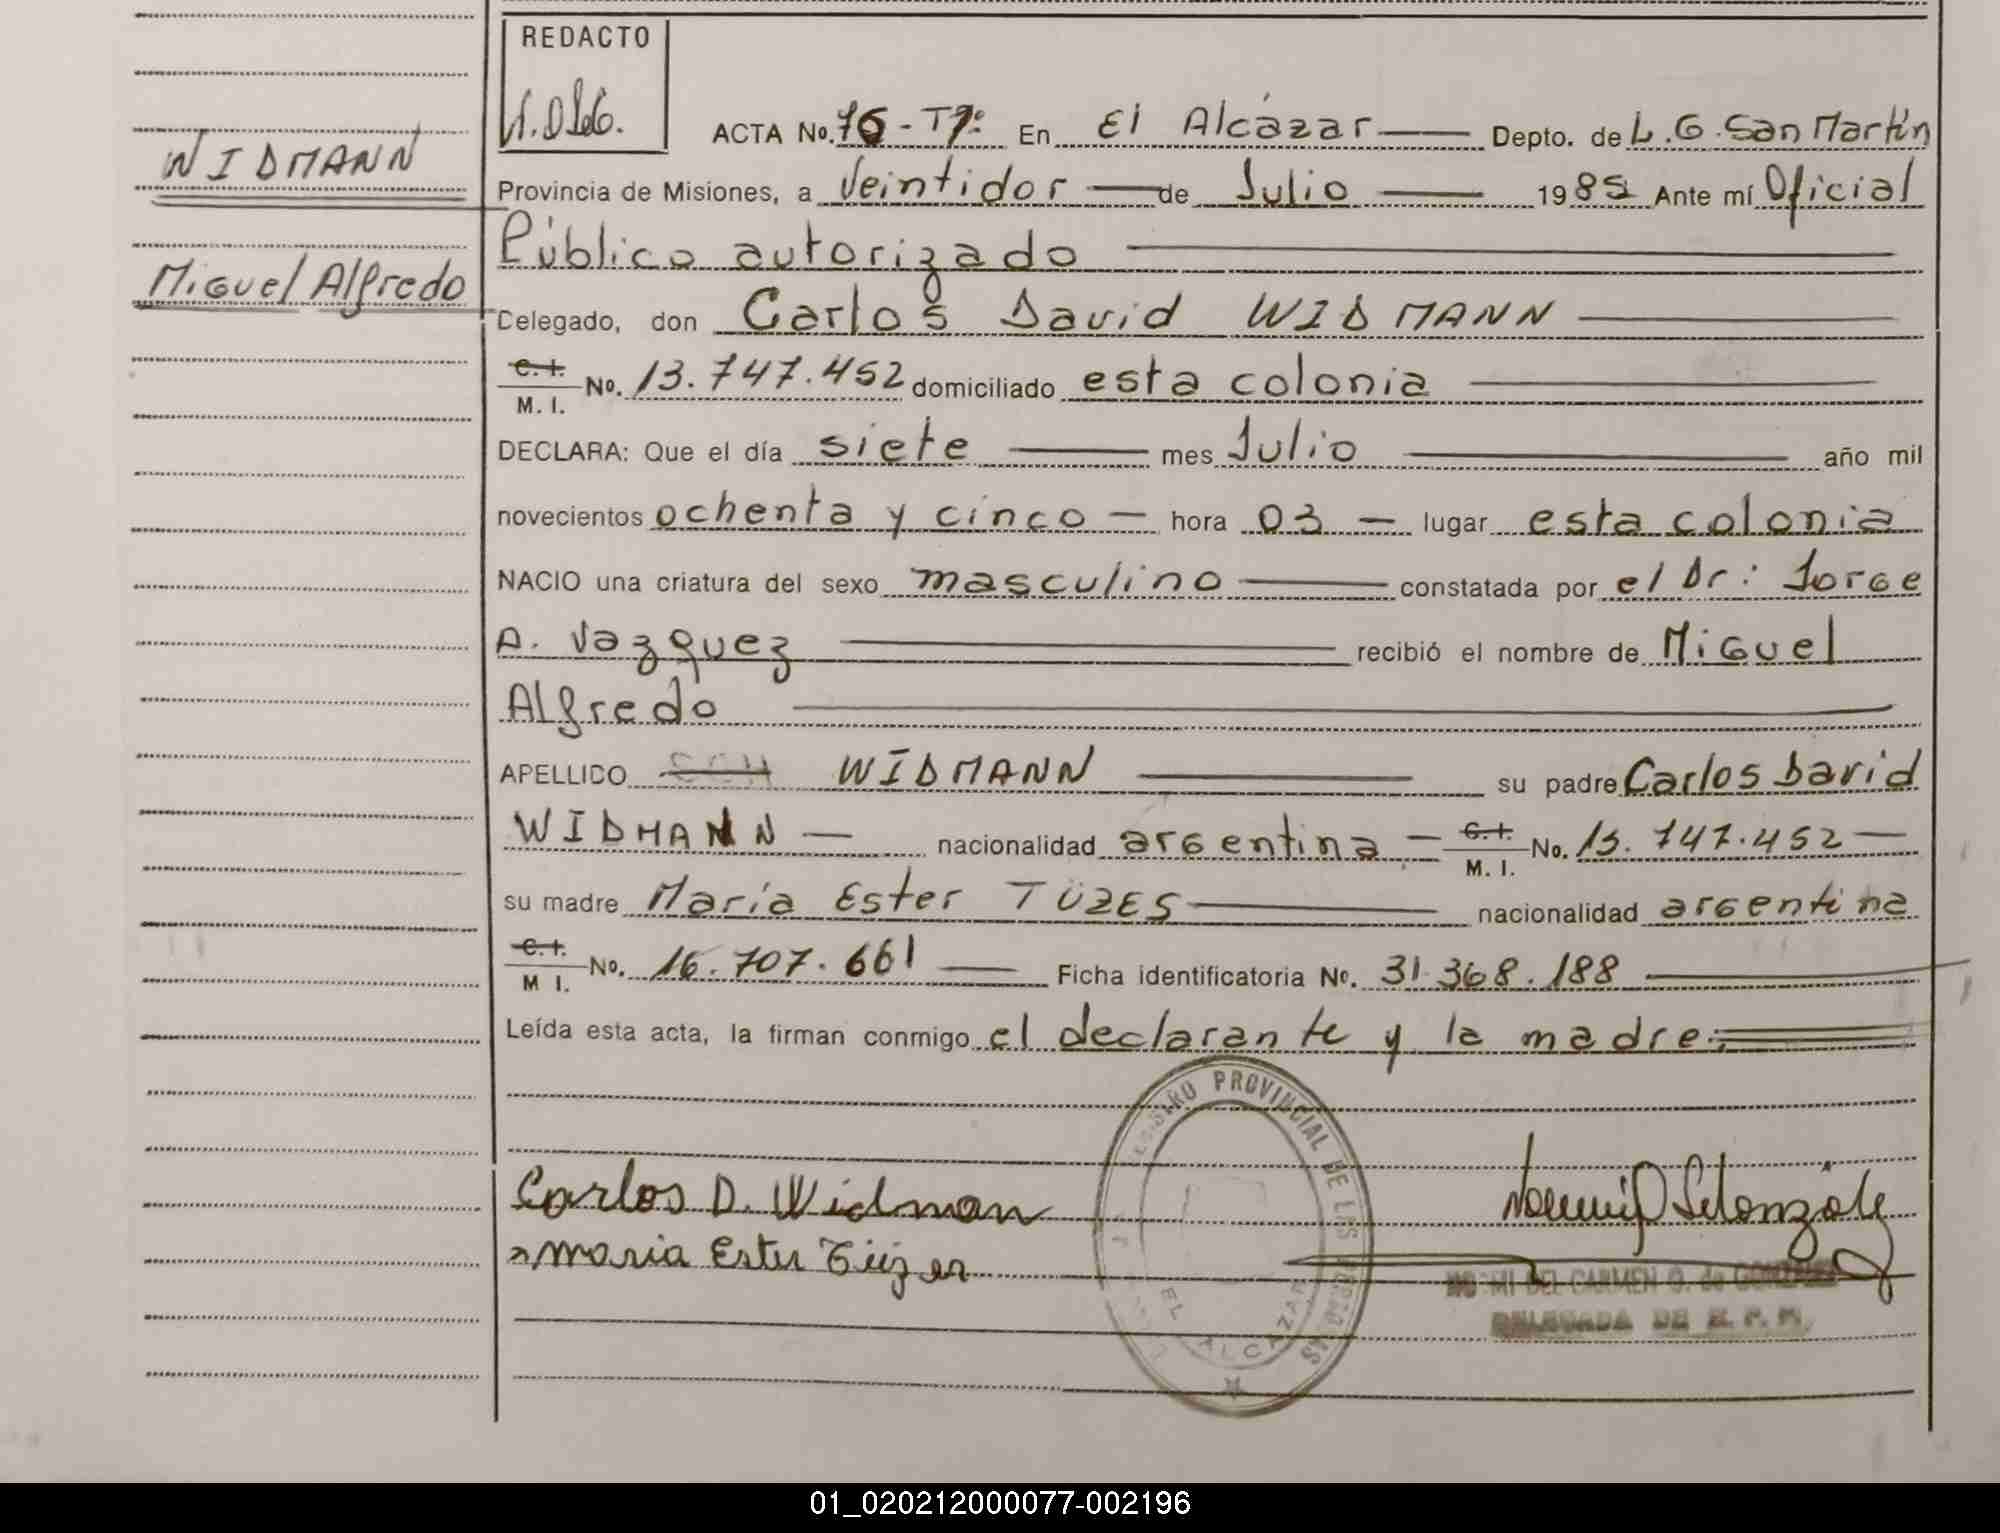 REDACTO
WIDMANN
Miguel Alfredo
ACTA No. 76-Tº: En El Alcázar Depto. de L.G. San Martín
Provincia de Misiones, a Veintidor de Julio 1985 Ante mí Oficial
Público autorizado
Delegado, don Carlos David WIDMANN
C.I. M.I. No. 13.747.452 domiciliado esta colonia
DECLARA: Que el día siete mes Julio año mil
novecientos ochenta y cinco hora 03 lugar esta colonia
NACIO una criatura del sexo masculino constatada por el Dr: Jorge
A. Vazquez recibió el nombre de Miguel
Alfredo
APELLIDO WIDMANN su padre Carlos David
WIDMANN nacionalidad argentina C.I. M.I. No. 13.747.452
su madre María Ester TÜZES nacionalidad argentina
C.I. M I. No. 16.707.661 Ficha identificatoria No. 31.368.188
Leída esta acta, la firman conmigo el declarante y la madre.
Carlos D. Widman
Maria Ester
REGISTRO PROVINCIAL DE LAS PERSONAS
EL ALCAZAR
DEL CARMEN G. de GONZALEZ
DELEGADA DE R. P. P.
01_020212000077-002196